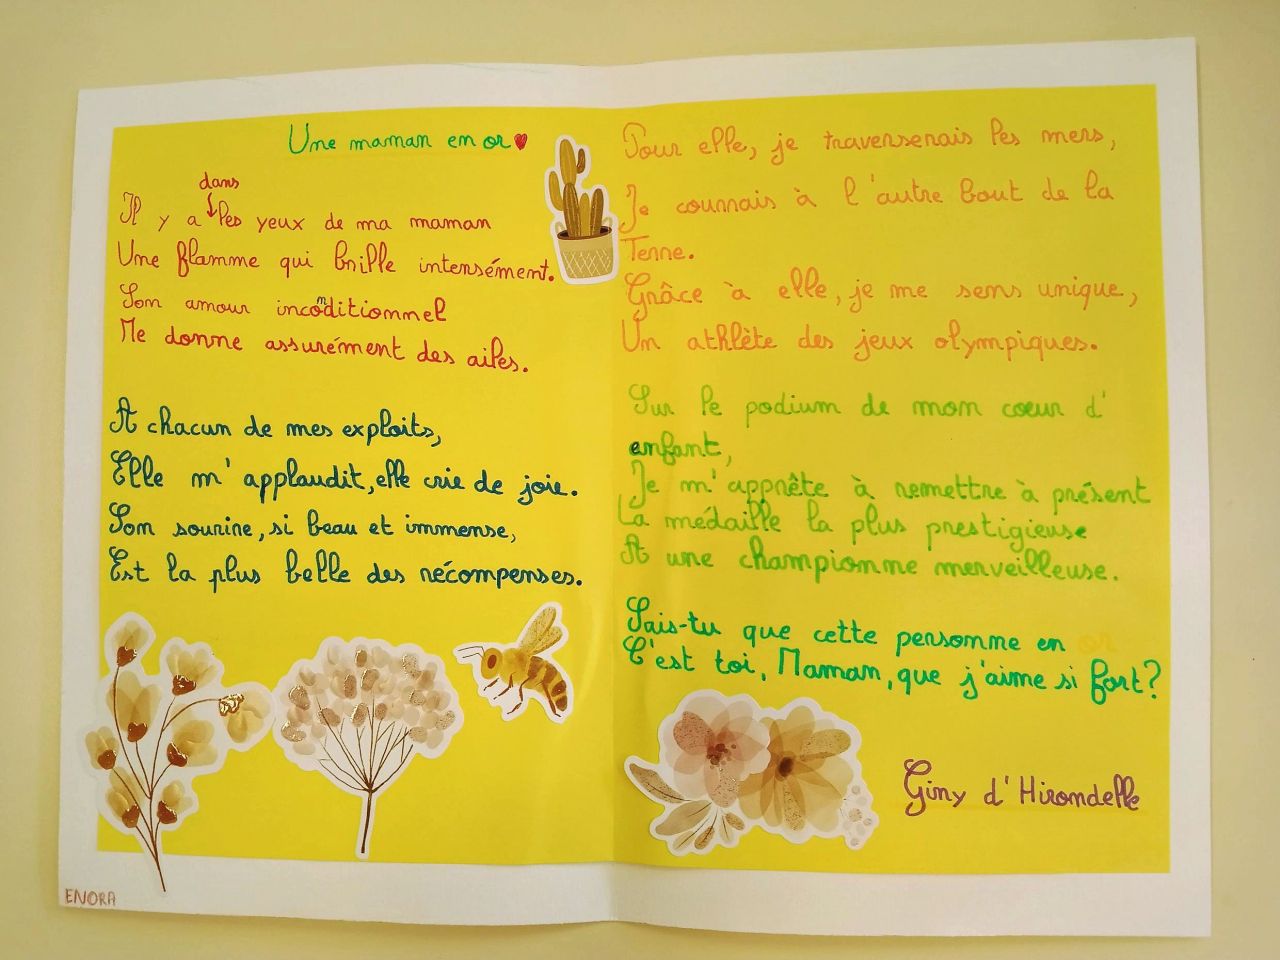 Une maman en or
Il y a dans les yeux de ma maman
Une flamme qui brille intensément.
Son amour inconditionnel
Me donne assurément des ailes.
A chacun de mes exploits,
Elle m'applaudit, elle crie de joie.
Son sourire, si beau et immense,
Est la plus belle des récompenses.
Pour elle, je traverserais les mers,
Je courrais à l'autre bout de la
Terre.
Grâce à elle, je me sens unique,
Un athlète des jeux olympiques.
Sur le podium de mon cœur d'
enfant,
Je m'apprête à remettre à présent
La médaille la plus prestigieuse
A une championne merveilleuse.
Sais-tu que cette personne en or
C'est toi, Maman, que j'aime si fort?
Giny d'Hirondelle
ENORA